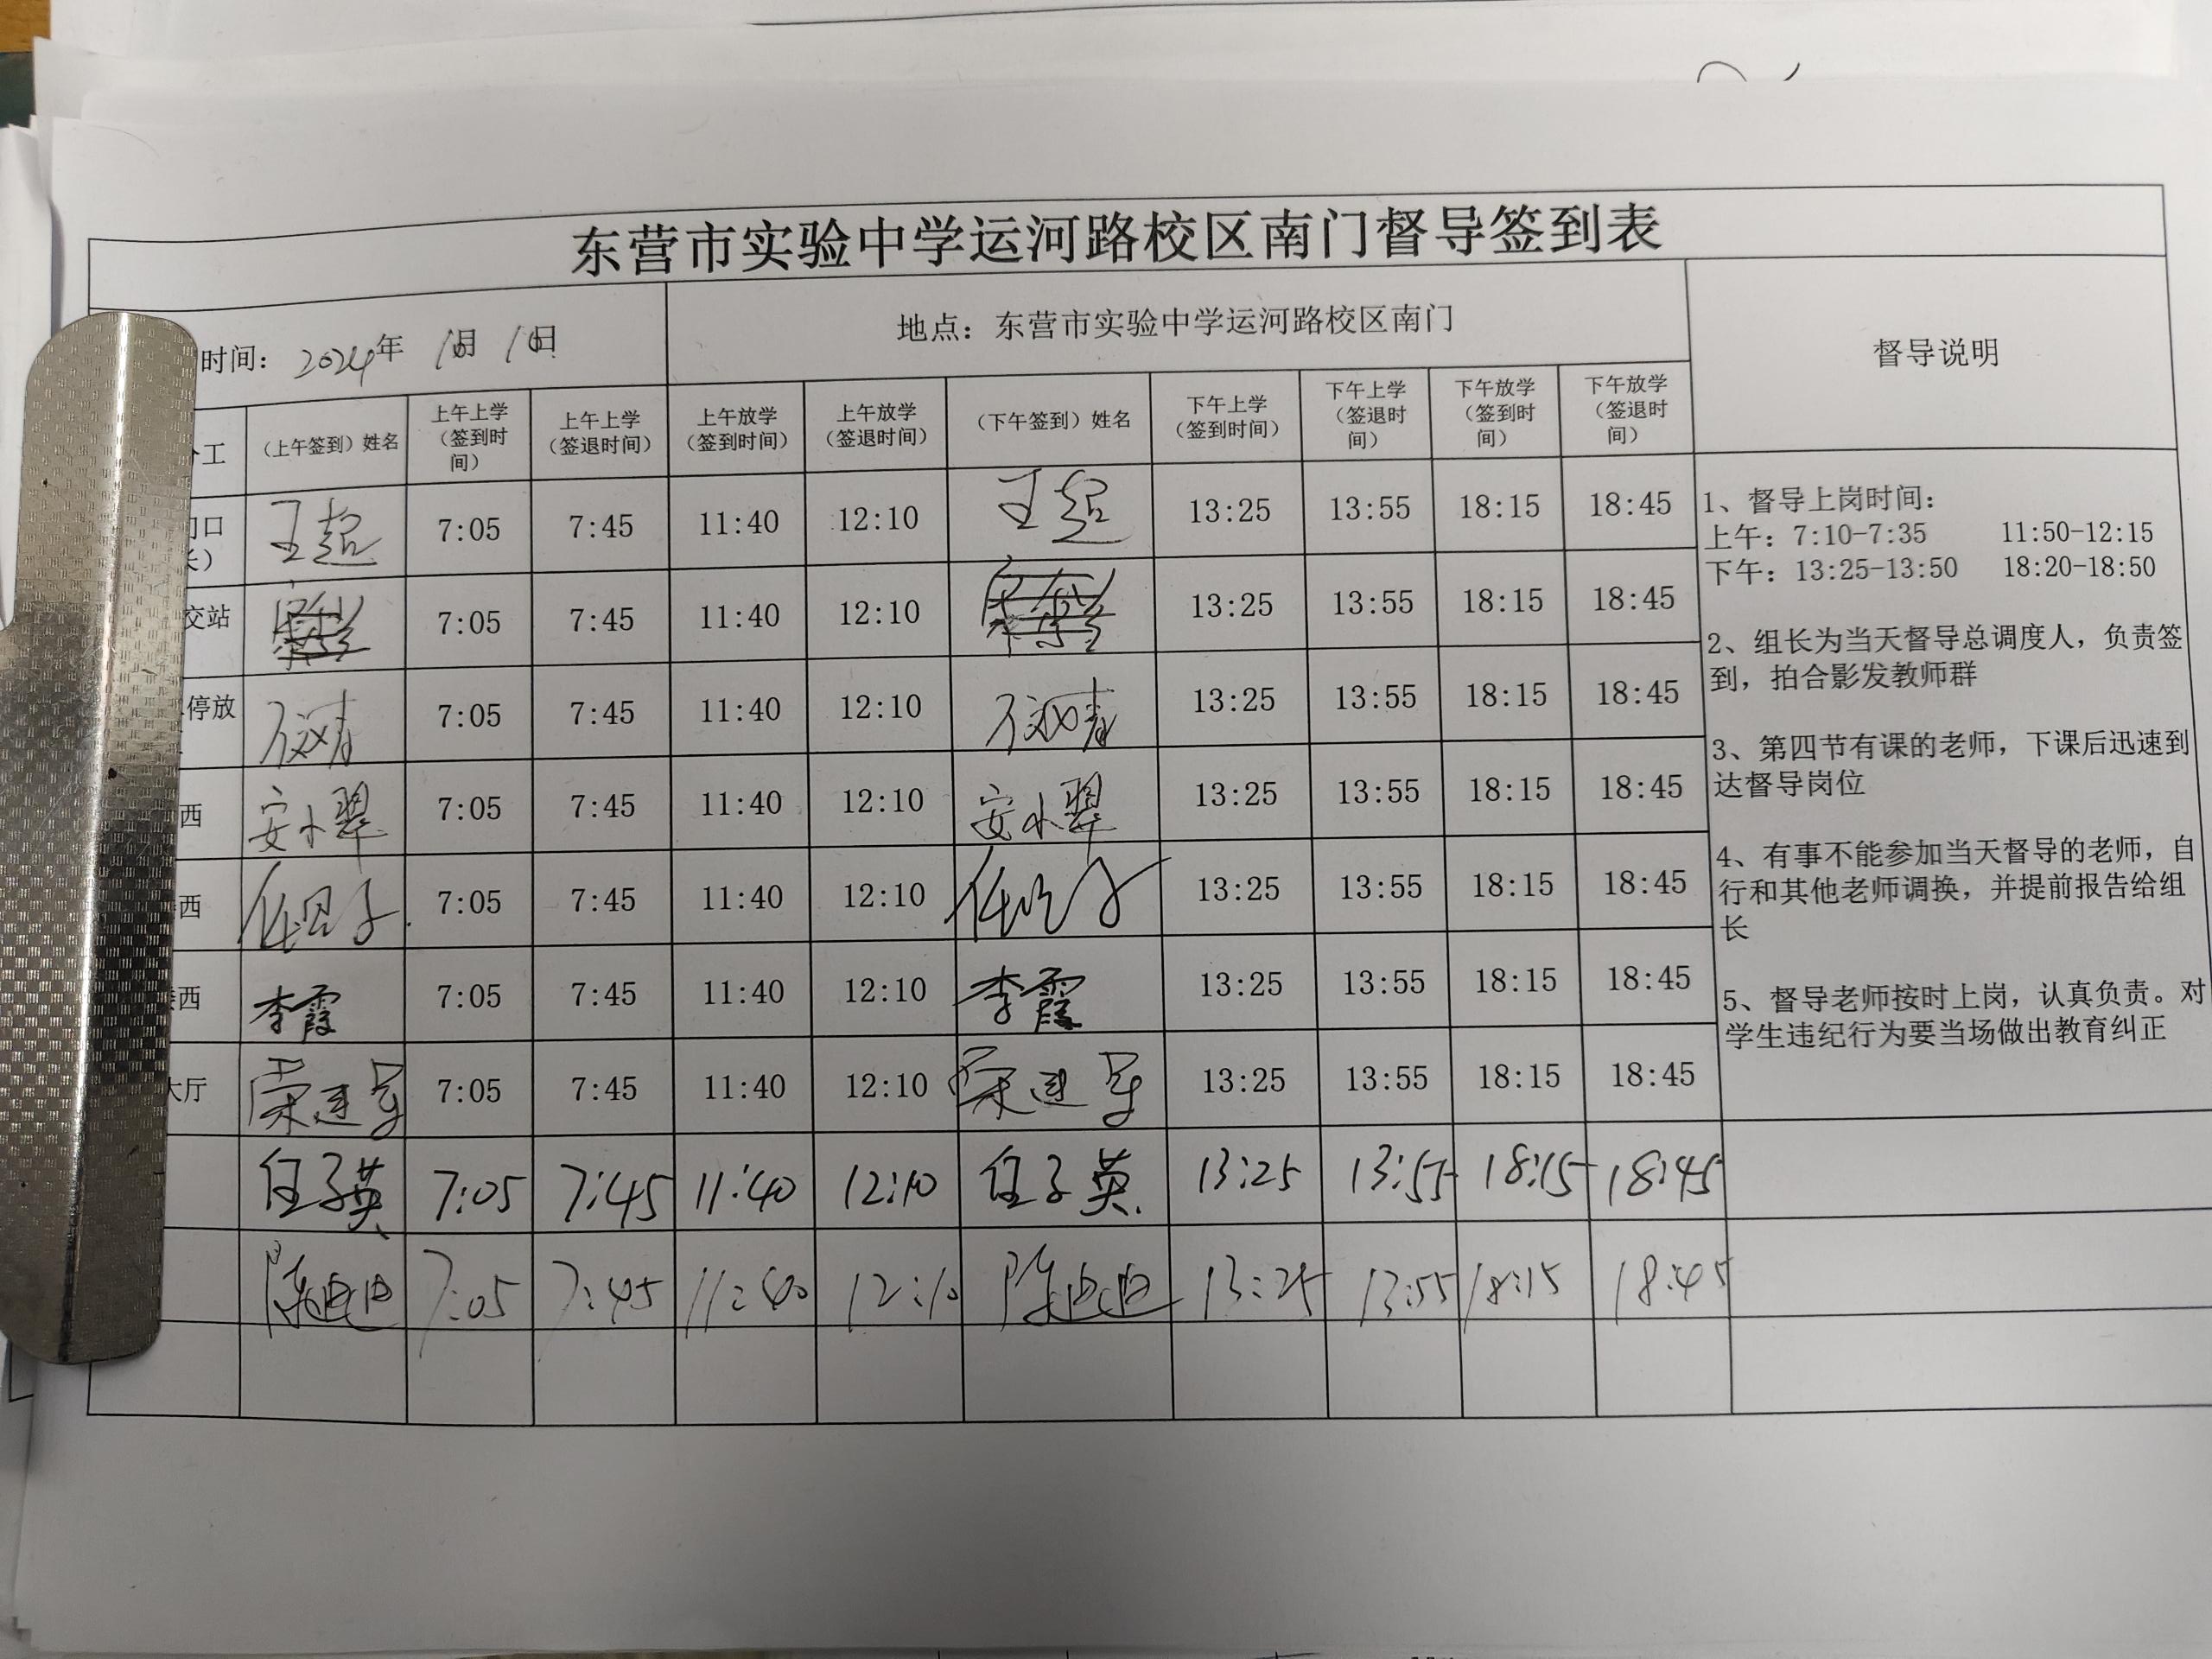 东营市实验中学运河路校区南门督导签到表
时间: 2024年 10月 10日
地点: 东营市实验中学运河路校区南门
督导说明
工 (上午签到) 姓名 上午上学(签到时间) 上午上学(签退时间) 上午放学(签到时间) 上午放学(签退时间) (下午签到) 姓名 下午上学(签到时间) 下午上学(签退时间) 下午放学(签到时间) 下午放学(签退时间)
口 王超 7:05 7:45 11:40 12:10 王超 13:25 13:55 18:15 18:45
交站 7:05 7:45 11:40 12:10 13:25 13:55 18:15 18:45
停放 7:05 7:45 11:40 12:10 13:25 13:55 18:15 18:45
西 安小翠 7:05 7:45 11:40 12:10 安小翠 13:25 13:55 18:15 18:45
西 7:05 7:45 11:40 12:10 13:25 13:55 18:15 18:45
西 李霞 7:05 7:45 11:40 12:10 李霞 13:25 13:55 18:15 18:45
大厅 荣建军 7:05 7:45 11:40 12:10 荣建军 13:25 13:55 18:15 18:45
任子英 7:05 7:45 11:40 12:10 任子英 13:25 13:55 18:15 18:45
陈迪迪 7:05 7:45 11:40 12:10 陈迪迪 13:25 13:55 18:15 18:45
1、督导上岗时间:
上午: 7:10-7:35 11:50-12:15
下午: 13:25-13:50 18:20-18:50
2、组长为当天督导总调度人，负责签
到，拍合影发教师群
3、第四节有课的老师，下课后迅速到
达督导岗位
4、有事不能参加当天督导的老师，自
行和其他老师调换，并提前报告给组
长
5、督导老师按时上岗，认真负责。对
学生违纪行为要当场做出教育纠正